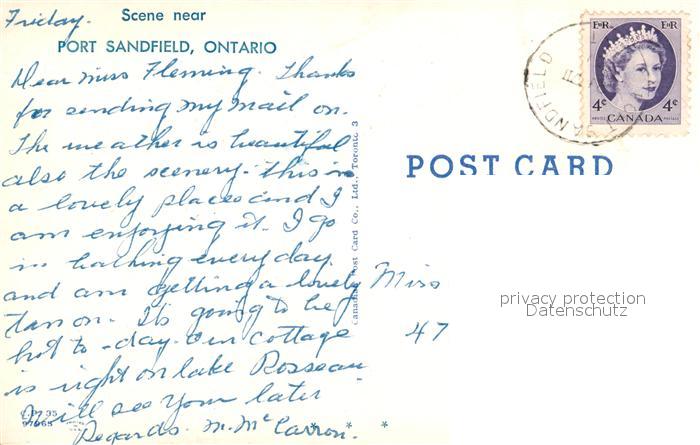 Friday.
Scene near
PORT SANDFIELD, ONTARIO
Dear Miss Fleming. Thanks
for sending my mail on.
The weather is beautiful
also the scenery. this is
a lovely place and I
am enjoying it. I go
in bathing every day
and am getting a lovely
tan on. It's going to be
hot to-day. our cottage
is right on lake Rosseau
will see you later
Regards. M. McCarron.
Canadian Post Card Co., Ltd., Toronto 3
E R E R
4¢ 4¢
POSTES POSTAGE
CANADA
SANDFIELD
POST CARD
Miss
47
privacy protection
Datenschutz
* * *